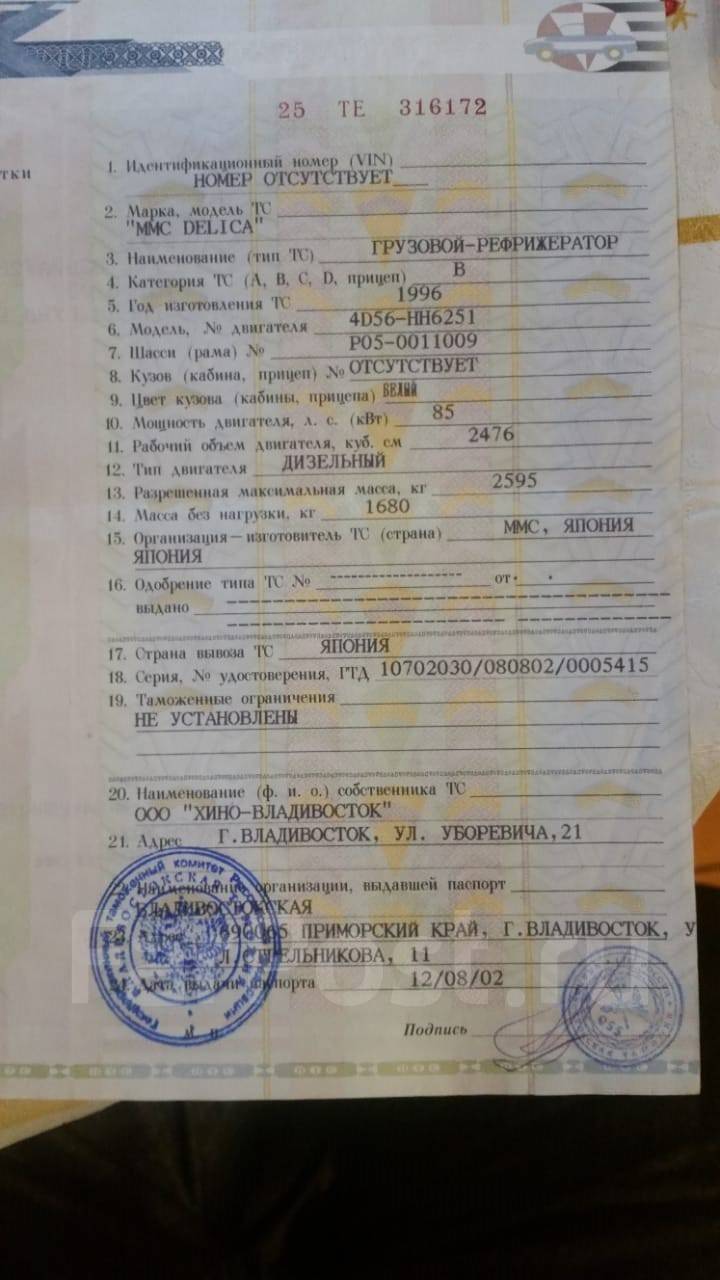 25 ТЕ 316172
тки
1. Идентификационный номер (VIN)
НОМЕР ОТСУТСТВУЕТ
2. Марка, модель ТС
"MMC DELICA"
3. Наименование (тип ТС) ГРУЗОВОЙ-РЕФРИЖЕРАТОР
4. Категория ТС (А, В, С, D, прицеп) В
5. Год изготовления ТС 1996
6. Модель, № двигателя 4D56-HH6251
7. Шасси (рама) № P05-0011009
8. Кузов (кабина, прицеп) № ОТСУТСТВУЕТ
9. Цвет кузова (кабины, прицепа) БЕЛЫЙ
10. Мощность двигателя, л. с. (кВт) 85
11. Рабочий объем двигателя, куб. см 2476
12. Тип двигателя ДИЗЕЛЬНЫЙ
13. Разрешенная максимальная масса, кг 2595
14. Масса без нагрузки, кг 1680
15. Организация—изготовитель ТС (страна) ММС, ЯПОНИЯ
ЯПОНИЯ
16. Одобрение типа ТС № ------------------- от
выдано
17. Страна вывоза ТС ЯПОНИЯ
18. Серия, № удостоверения, ГТД 10702030/080802/0005415
19. Таможенные ограничения
НЕ УСТАНОВЛЕНЫ
20. Наименование (ф. и. о.) собственника ТС
ООО "ХИНО-ВЛАДИВОСТОК"
21. Адрес Г.ВЛАДИВОСТОК, УЛ. УБОРЕВИЧА,21
22. Наименование организации, выдавшей паспорт
ВЛАДИВОСТОКСКАЯ
23. Адрес 690065 ПРИМОРСКИЙ КРАЙ, Г.ВЛАДИВОСТОК, У
Л.СТРЕЛЬНИКОВА, 11
24. Дата выдачи паспорта 12/08/02
Подпись